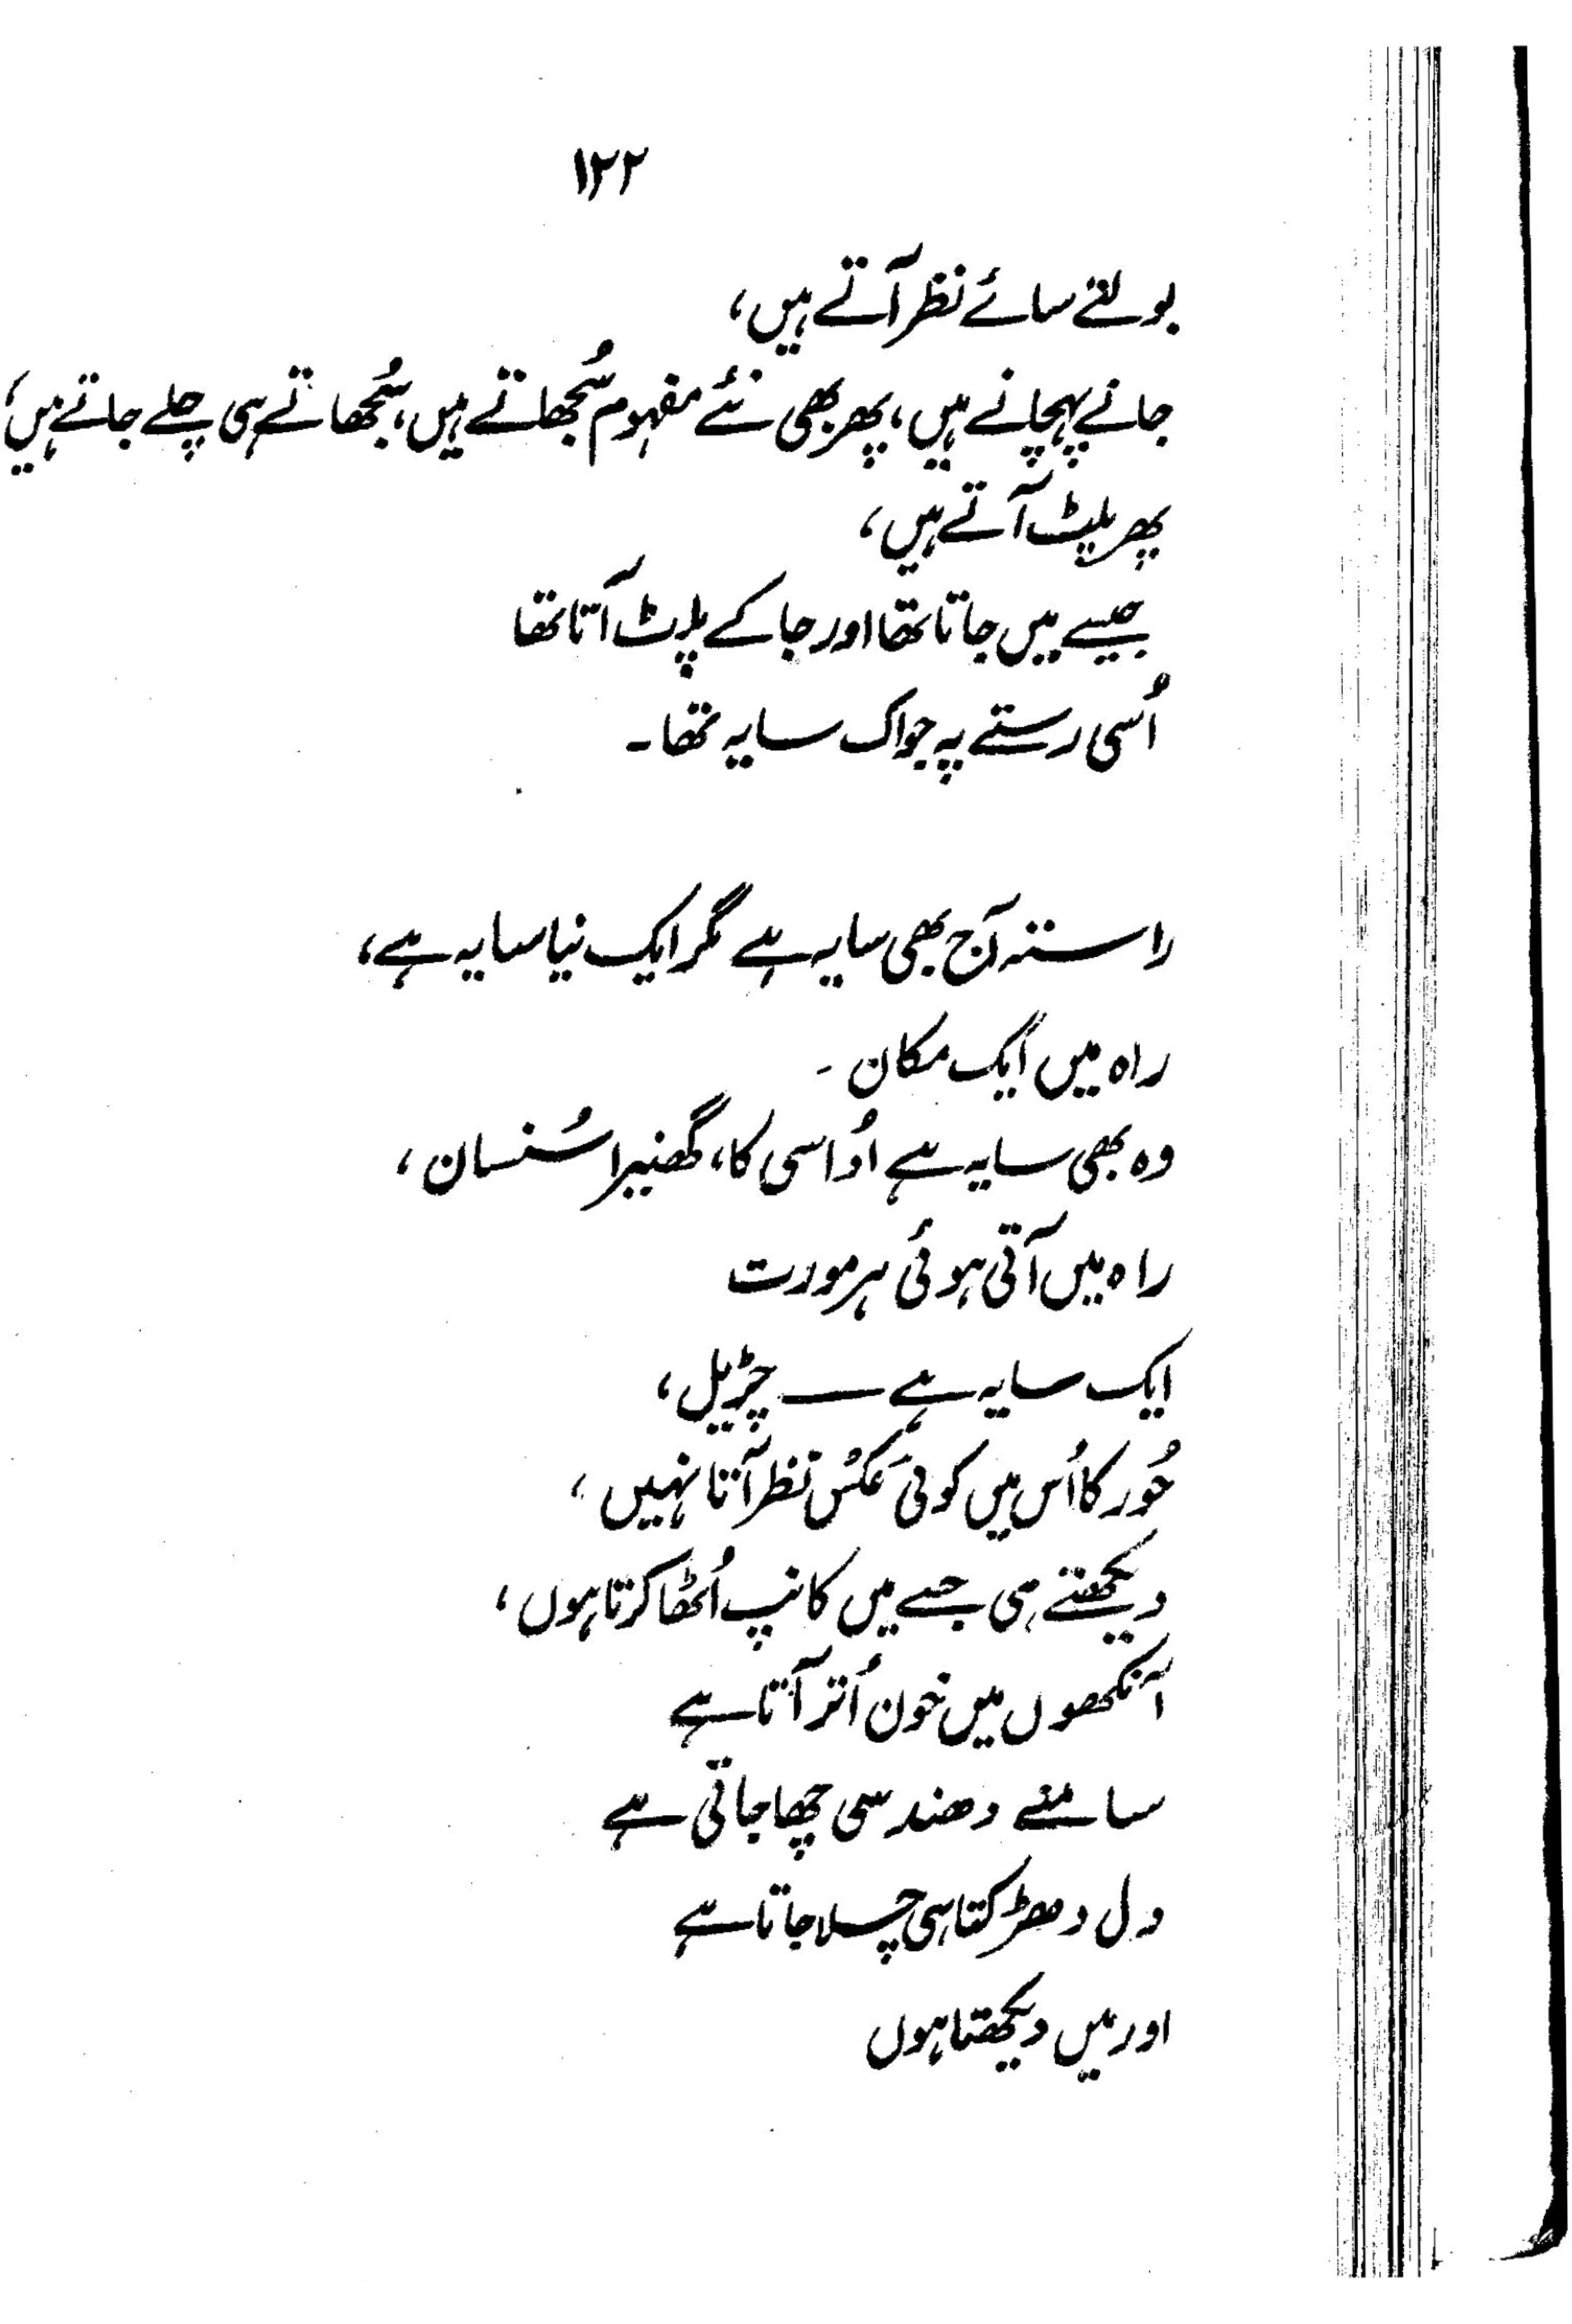 ۱۲۲
بولتے سائے نظر آتے ہیں،
جانے پہچانے ہیں، پھر بھی نئے مفہوم سُجھاتے ہیں، سُجھاتے ہی چلے جاتے ہیں،
پھر پلیٹ آتے ہیں،
جیسے میں جاتا تھا اور جا کے پلٹ آتا تھا
اُسی رستے پہ جو اک سایہ تھا۔
راستہ آج بھی سایہ ہے مگر ایک نیا سایہ ہے،
راہ میں ایک مکان ۔
وہ بھی سایہ ہے اُداسی کا، گھنیرا سُنسان،
راہ میں آتی ہوئی ہر مورت
ایک سایہ ہے ــــ چڑیل،
حُور کا اُس میں کوئی عَکس نظر آتا نہیں،
دیکھتے ہی جسے میں کانپ اُٹھا کرتا ہوں،
آنکھوں میں خون اُتر آتا ہے
سامنے دھند سی چھا جاتی ہے
دل دھڑکتا ہی چلا جاتا ہے
اور میں دیکھتا ہوں